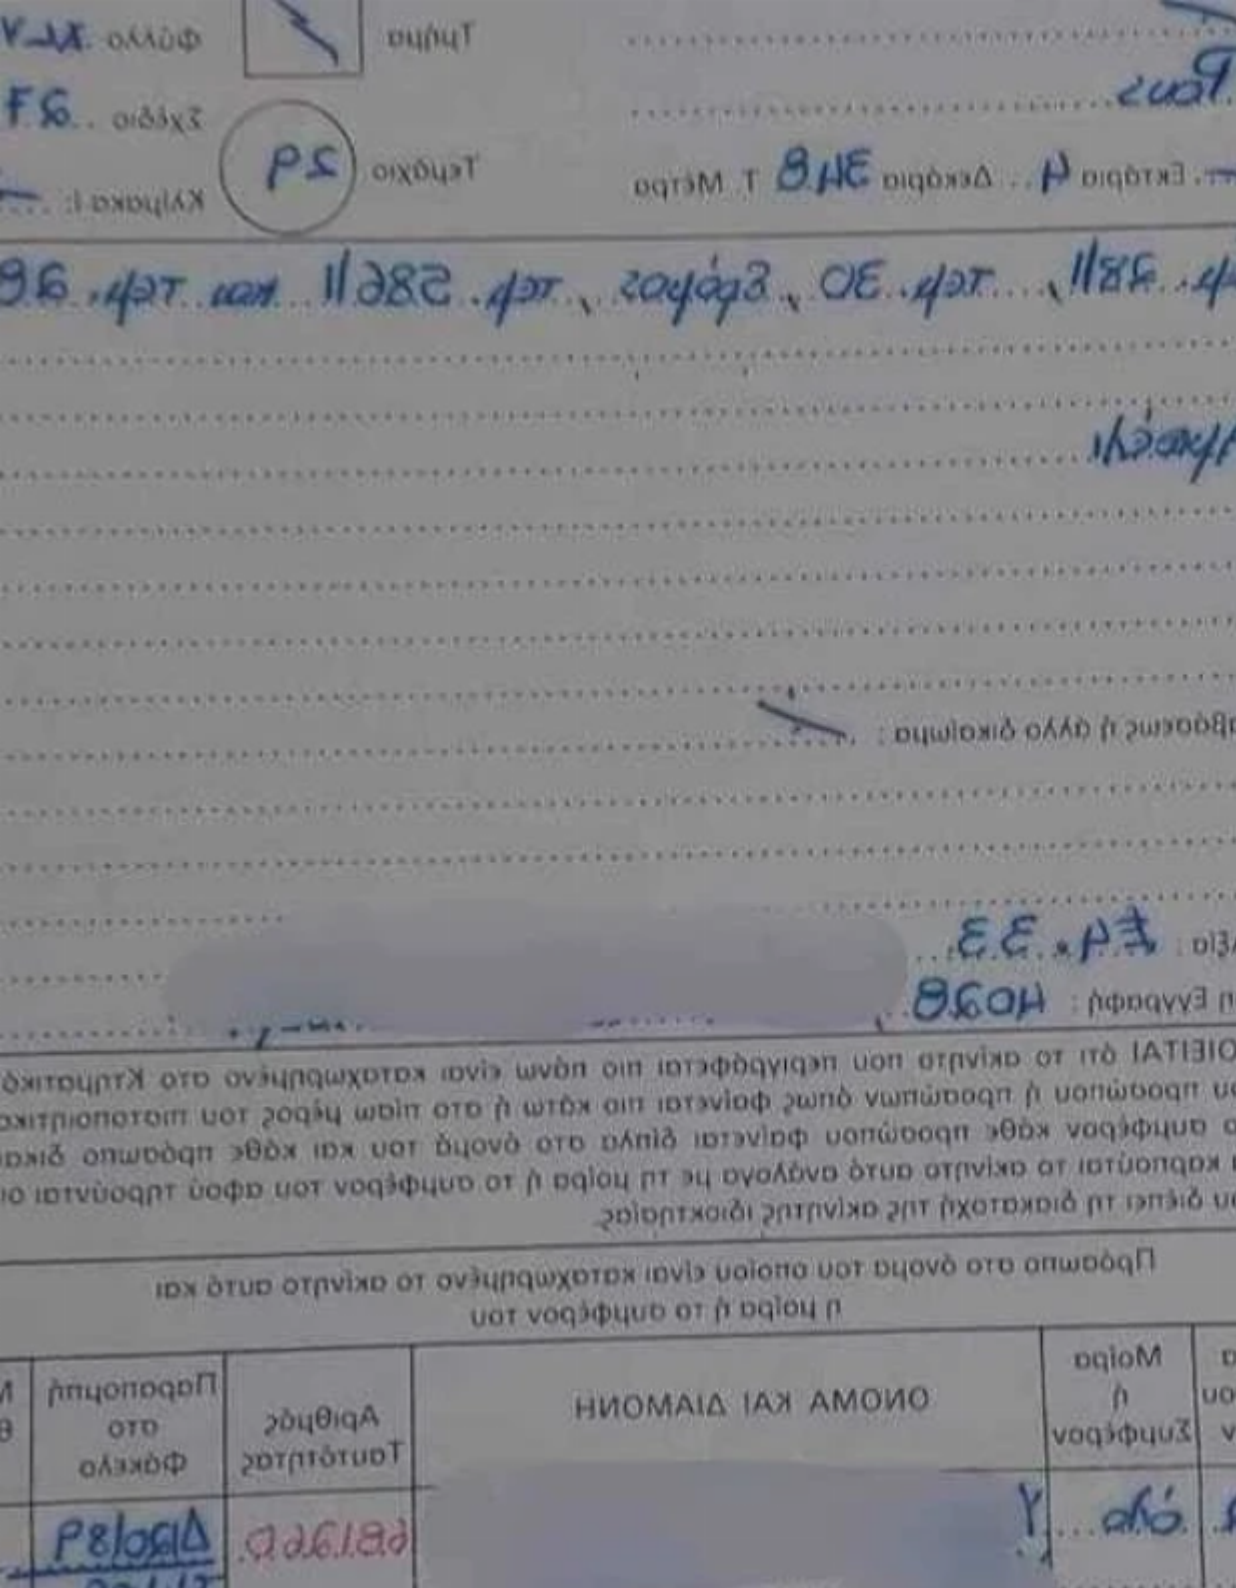 Τμήμα Φύλλο XLV
Σχέδιο
Εκτάρια 4 Δεκάρια 348 Τ. Μέτρα Τεμάχιο 29 Κλίμακα Ι:
τεμ. 30, δρόμος, τεμ. και τεμ.
άβάσεως ή άλλο δικαίωμα :
ξία : £4.33
η Εγγραφή : 4028
ΟΙΕΙΤΑΙ ότι το ακίνητο που περιγράφεται πιο πάνω είναι καταχωρημένο στο Κτηματικό
ου προσώπου ή προσώπων όπως φαίνεται πιο κάτω ή στο πίσω μέρος του πιστοποιητικο
ο συμφέρον κάθε προσώπου φαίνεται δίπλα στο όνομά του και κάθε πρόσωπο δικαι
ι καρπούται το ακίνητο αυτό ανάλογα με τη μοίρα ή το συμφέρον του αφού τηρούνται οι
ου διέπει τη διακατοχή της ακίνητης ιδιοκτησίας.
Πρόσωπο στο όνομα του οποίου είναι καταχωρημένο το ακίνητο αυτό και
η μοίρα ή το συμφέρον του
Μοίρα ή Συμφέρον
ΟΝΟΜΑ ΚΑΙ ΔΙΑΜΟΝΗ
Αριθμός Ταυτότητας
Παραπομπή στο Φάκελο
όλο